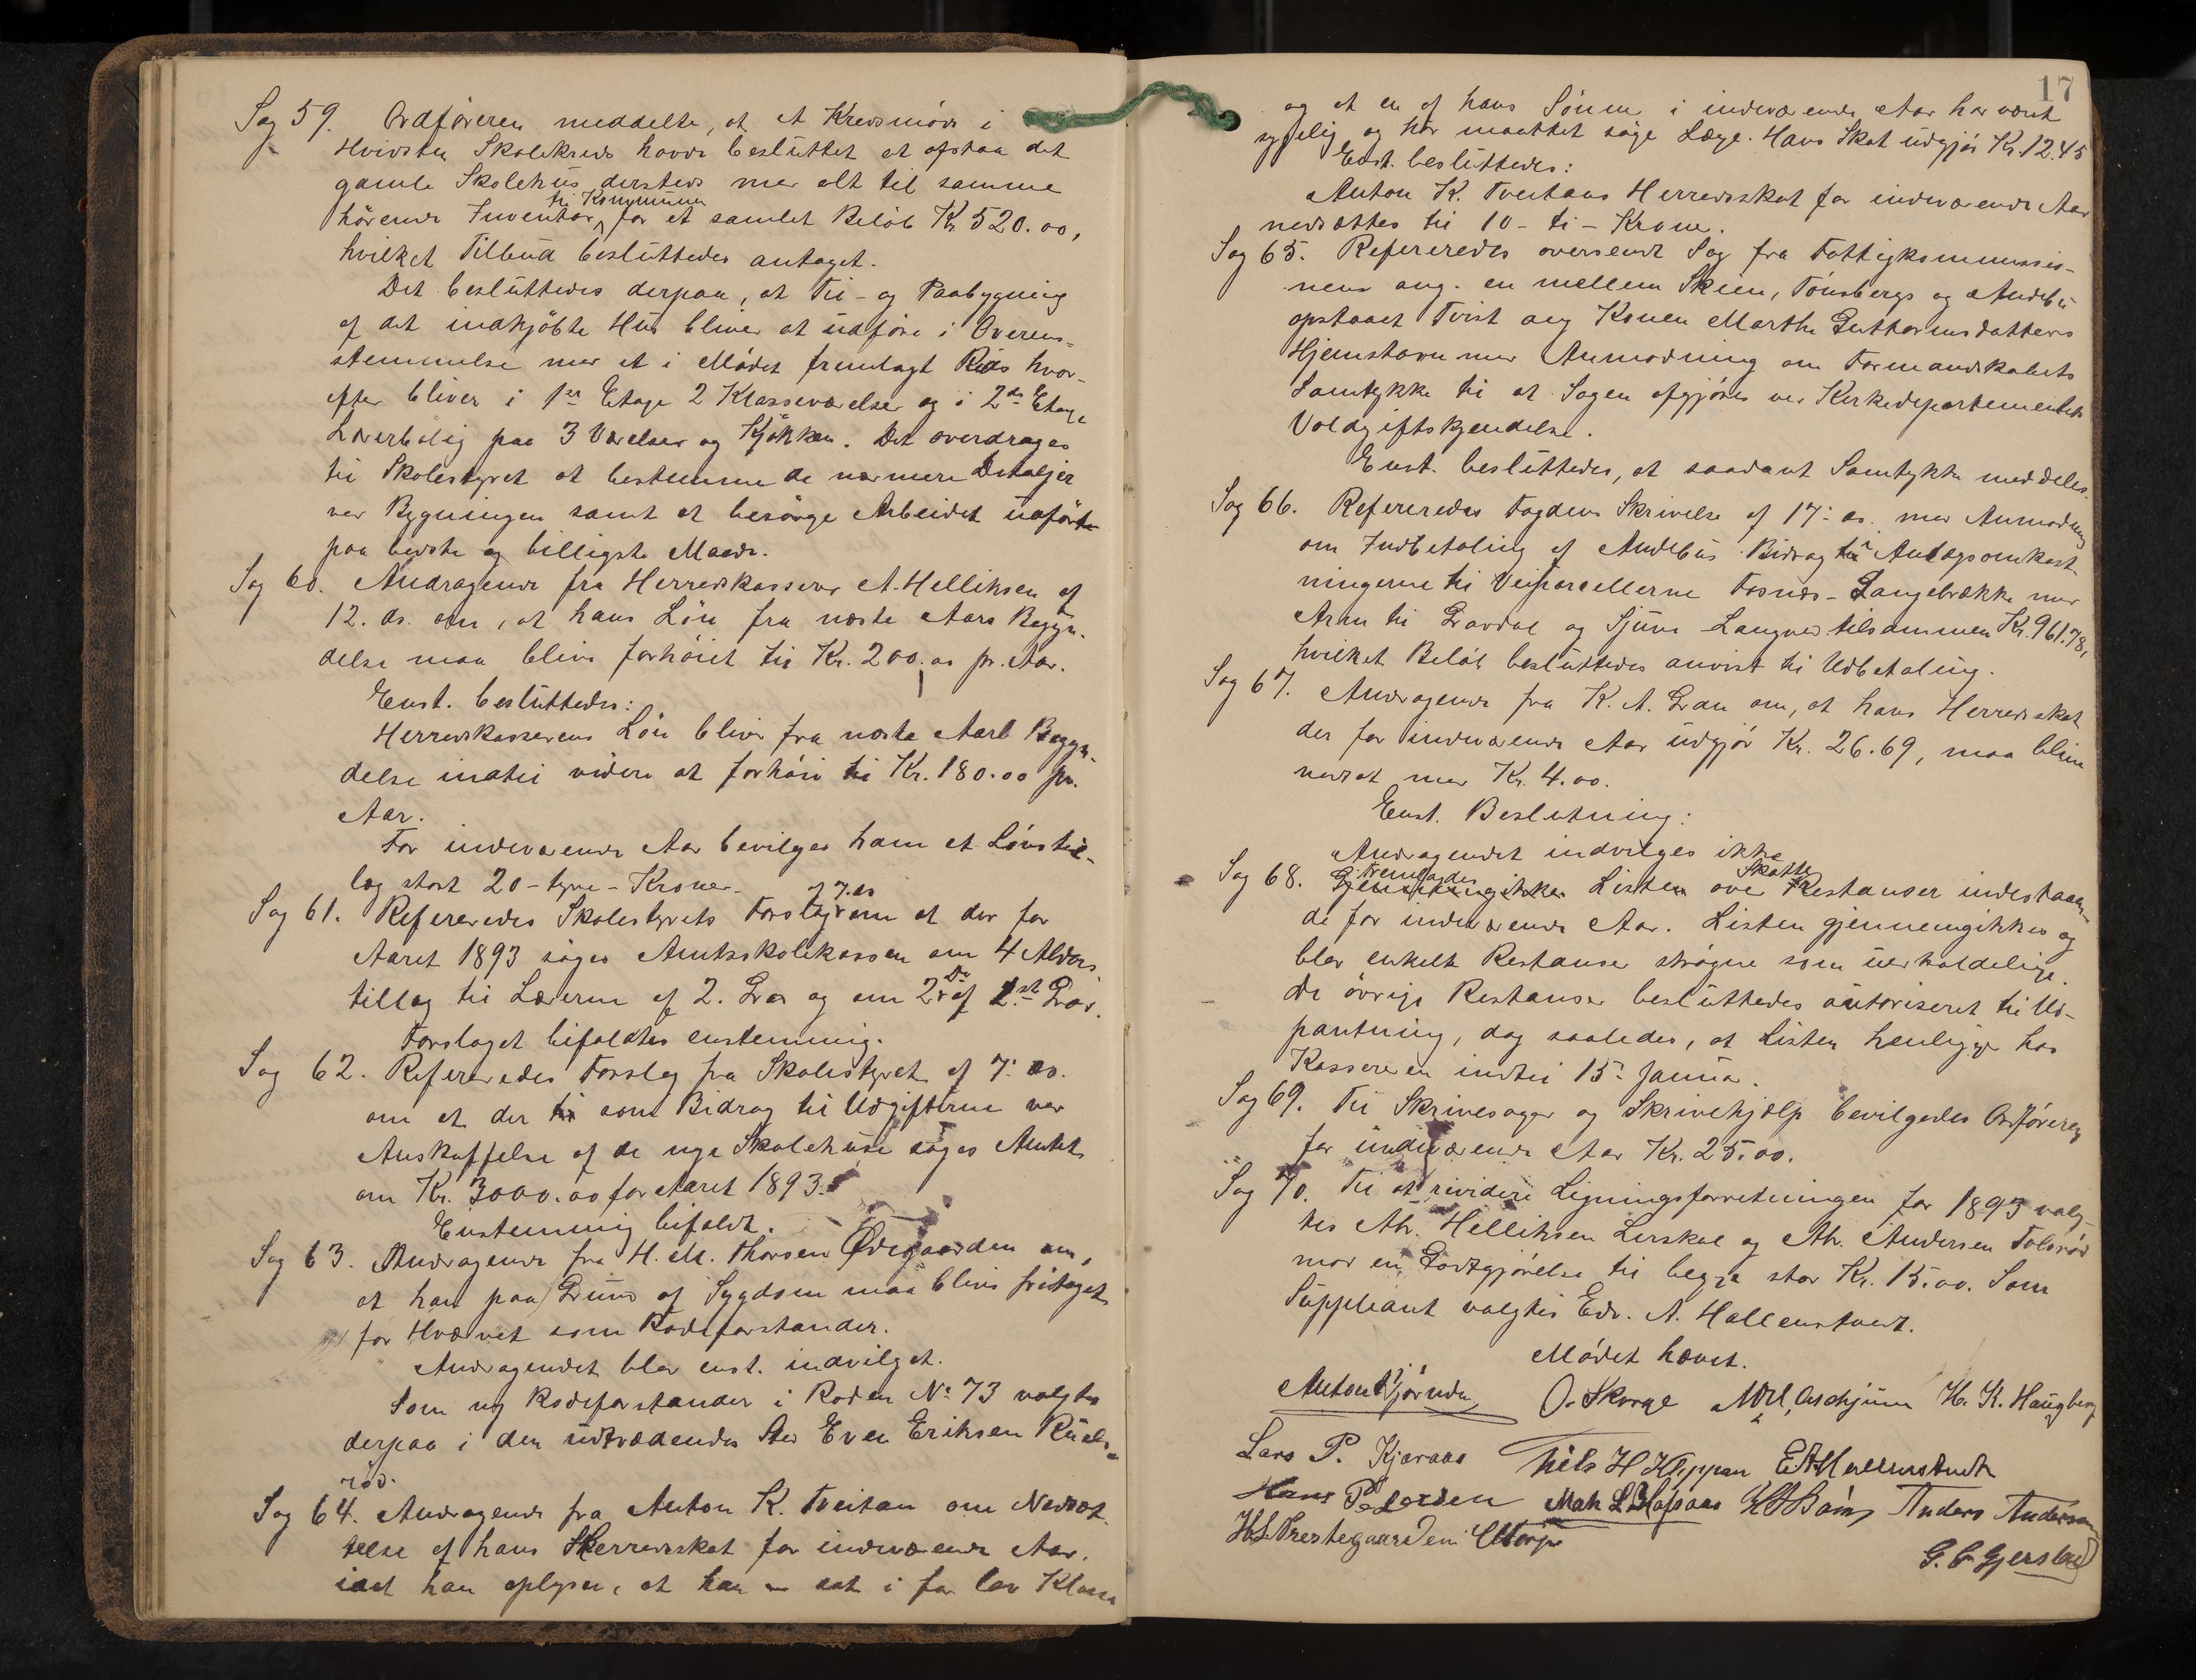 Sag 59. Ordføreren meddelte, at et Kredsmøde i
Hvidsten Skolekreds havde besluttet at afstaa det
gamle Skolehus dersteds med alt til samme
hørende Inventar til Kommunen for et samlet Beløb Kr 520.00,
hvilket Tilbud besluttedes antaget.
Det besluttedes derpaa, at Til- og Paabygning
af det indkjøbte Hus bliver at udføre i Overens-
stemmelse med et i Mødet fremlagt Rids hvor-
efter bliver i 1ste Etage 2 Klasseværelser og i 2den Etage
Lærerbolig paa 3 Værelser og Kjøkken. Det overdrages
til Skolestyret at bestemme de nærmere Detaljer
ved Bygningen samt at besørge Arbeidet udført
paa bedste og billigste Maade.
Sag 60. Andragende fra Herredskasserer A. Helliksen af
12. ds. om, at hans Løn fra næste Aars Begyn-
delse maa blive forhøiet til Kr. 200.00 pr. Aar.
Enst. besluttedes:
Herredskassererens Løn bliver fra næste Aars Begyn-
delse indtil videre at forhøie til Kr. 180.00 pr.
Aar.
For indeværende Aar bevilges ham et Lønstil-
læg stort 20 - tyve - Kroner.
Sag 61. Refereredes Skolestyrets Forslag af 7. ds om at der for
Aaret 1893 søges Amtsskolekassen om 4 Alders-
tillæg til Lærerne af 2. Grad og om 2 Do af 1st Grad.
Forslaget bifaldtes enstemmig.
Sag 62. Refereredes Forslag fra Skolestyret af 7. ds.
om at der som Bidrag til Udgifterne ved
Anskaffelse af de nye Skolehuse søges Amtet
om Kr. 3000.00 for Aaret 1893.
Enstemmig bifaldt.
Sag 63. Andragende fra H. M. Thorsen Ødegaarden om,
at han paa Grund af Sygdom maa blive fritaget
for Hvervet som Rodeforstander.
Andragendet blev enst. indvilget.
Som ny Rodeforstander i Roden No 73 valgtes
derpaa i den udtrædendes Sted Even Eriksen Ruels-
rød.
Sag 64. Andragende fra Anton K. Tveitan om Nedsæt-
telse af hans Herredsskat for indeværende Aar,
idet han oplyser, at han er sat i for lav Klasse
17
og at en af hans Sønner i indeværende Aar har været
sygelig og har maattet søge Læge. Hans Skat udgjør Kr. 12.45
Enst. besluttedes:
Anton K. Tveitans Herredsskat for indeværende Aar
nedsættes til 10 - ti - Kroner.
Sag 65. Refereredes oversendt Sag fra Fattigkommissio-
nen ang. en mellem Skien, Tønsbergs og Andebu
opstaaet Tvist ang Konen Marthe Guttormsdatters
Hjemstavn med Anmodning om Formandskabets
Samtykke til at Sagen afgjøres ved Kirkedepartementets
Voldgiftskjendelse.
Enst. besluttedes, at saadant Samtykke meddeles.
Sag 66. Refereredes Fogdens Skrivelse af 17. ds. med Anmodning
om Indbetaling af Andebus Bidrag til Anlægsomkost-
ningerne til Veiparcellerne Fosnæs - Langebrække med
Arm til Gravdal og Sjuve - Langnes tilsammen Kr. 961.78,
hvilket Beløb besluttedes anvist til Udbetaling.
Sag 67. Andragende fra K. A. Gran om, at hans Herredsskat
der for indeværende Aar udgjør Kr. 26.69, maa blive
nedsat med Kr. 4.00.
Enst. Beslutning:
Andragendet indvilges ikke
Sag 68. Fremlagdes Listen over Skatte Restanser indestaaen-
de for indeværende Aar. Listen gjennemgikkes og
blev enkelte Restanser strøgne som uerholdelige.
De øvrige Restanser besluttedes autoriseret til Ud-
pantning, dog saaledes, at Listen henligger hos
Kassereren indtil 15. Januar.
Sag 69. Til Skrivesager og Skrivehjælp bevilgedes Ordføreren
for indeværende Aar Kr. 25.00.
Sag 70. Til at revidere Ligningsforretningen for 1893 valg-
tes Ab. Helliksen Lerskal og Ab. Andersen Tolsrød
mod en Godtgjørelse til begge stor Kr. 15.00. Som
Suppleant valgtes Edv. A. Hallenstvedt.
Mødet hævet.
Anton Gjørnda O. Skorge Aschjum H. K. Haugberg
Lars P. Kjæraas Nils H Klippen E A Hallenstvedt
Hans Pedersen Math L Høyaas Anders Andersen
H. L. Prestegaarden
G. C Gjerstad